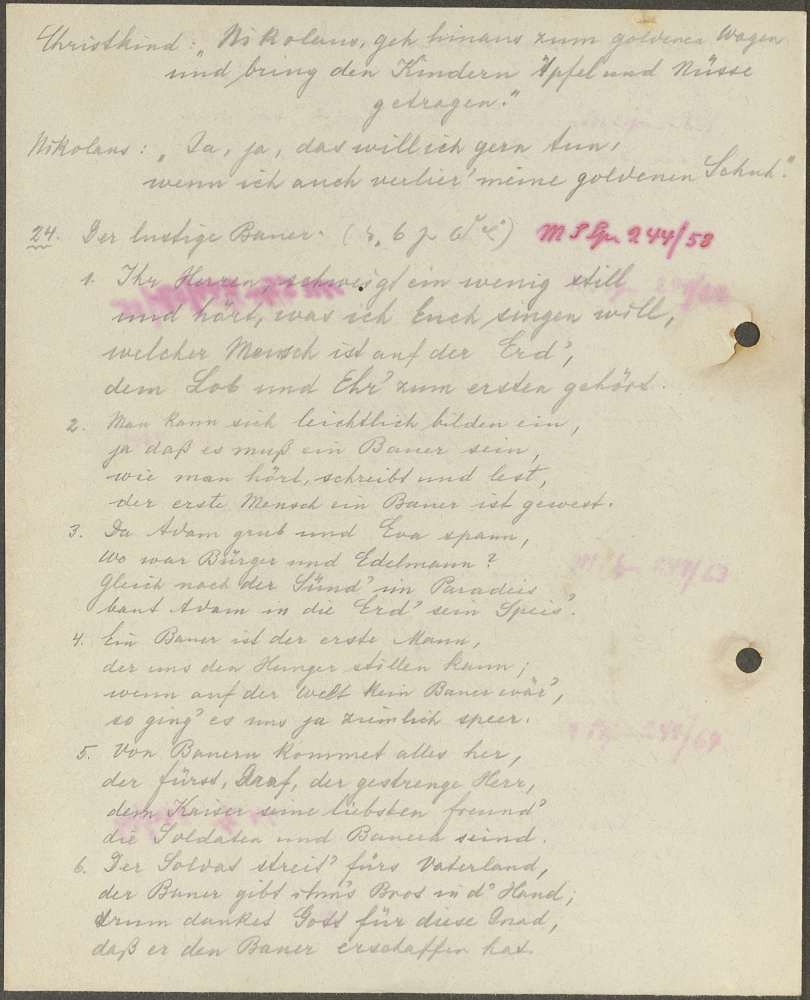 Christkind: „Nikolaus, geh hinaus zum goldenen Wagen
und bring den Kindern Äpfel und Nüsse
getragen."
Nikolaus: „Ja, ja, das will ich gern tun,
wenn ich auch verlier' meine goldenen Schuh."
24. Der lustige Bauer. M S 244/58
1. Ihr Herren, schweigt ein wenig still
und hört, was ich Euch singen will,
welcher Mensch ist auf der Erd',
dem Lob und Ehr' zum ersten gehört.
2. Man kann sich leichtlich bilden ein,
ja daß es muß ein Bauer sein,
wie man hört, schreibt und lest,
der erste Mensch ein Bauer ist gewest.
3. Da Adam grub und Eva spann,
wo war Bürger und Edelmann?
Gleich nach der Sünd' im Paradeis
baut Adam in die Erd' sein Speis'.
4. Ein Bauer ist der erste Mann,
der uns den Hunger stillen kann;
wenn auf der Welt kein Bauer wär',
so ging' es uns ja ziemlich speer.
5. Von Bauern kommet alles her,
der Fürst, Graf, der gestrenge Herr,
dem Kaiser seine liebsten Freund'
die Soldaten und Bauern seind.
6. Der Soldat streit' fürs Vaterland,
der Bauer gibt ihm's Brot in d' Hand;
drum danket Gott für diese Gnad,
daß er den Bauer erschaffen hat.